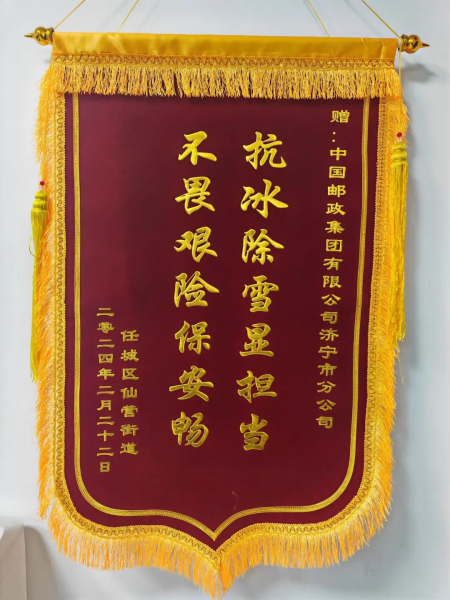 赠：中国邮政集团有限公司济宁市分公司
抗冰除雪显担当
不畏艰险保安畅
任城区仙营街道
二零二四年二月二十二日